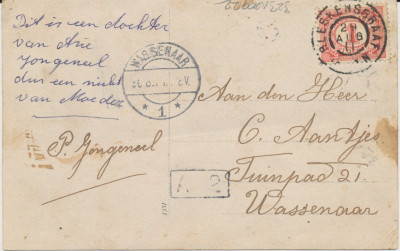 Dit is een dochter
van Arie
Jongeneel
dus een nicht
van Moeder
P. Jongeneel
WASSENAAR
* 1 *
BLESKENSGRAAF
Aan den Heer
C. Aantjes
Tuinpad 21.
Wassenaar